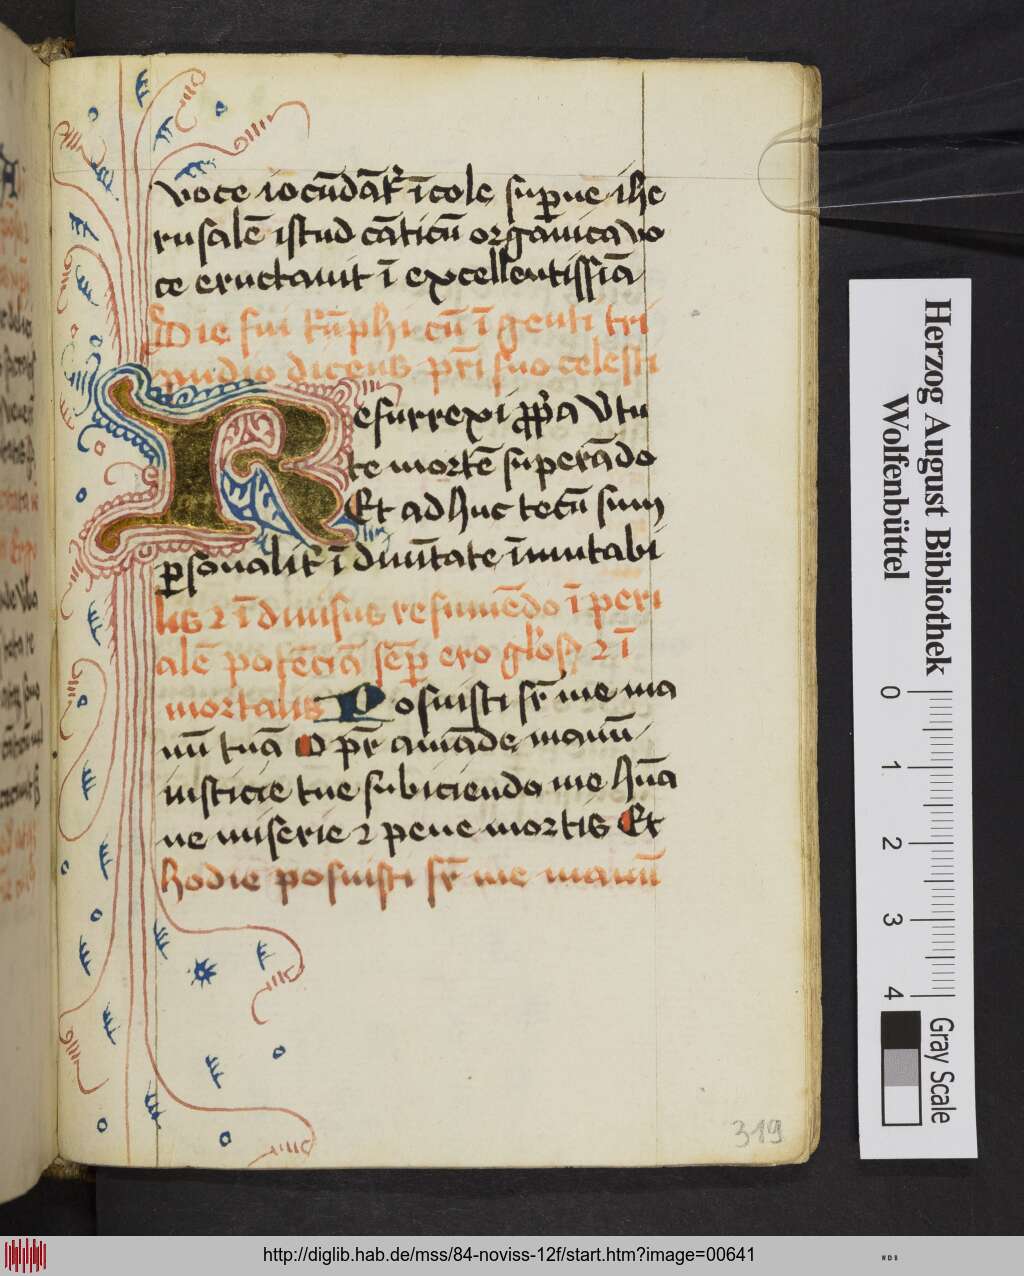 voce iocūdāt᷑ ī cole sup̄ne ihe
rusalē istud cāticū organica vo
ce eructauit ī excellentissīa
Die sui t᷑ūphi cū īgenti tri
pudio dicens pr̄i suo celesti
Resurrexi ꝓp̄a v̓tu
te mortē superādo
Et adhuc tecū sum
ꝑsonalit᷑ ī diuītate īmutabi
lis ⁊ īdiuisus resumēdo īperi
alē potēciā sēꝑ ero glōsꝰ ⁊ ī
mortalis Posuisti sr̄ me ma
nū tuā O pr̄ amāde manū
iusticie tue subiciendo me huā
ne miserie ⁊ pene mortis Et
hodie posuisti sr̄ me manū
319
Herzog August Bibliothek
Wolfenbüttel
0 1 2 3 4
Gray Scale
http://diglib.hab.de/mss/84-noviss-12f/start.htm?image=00641